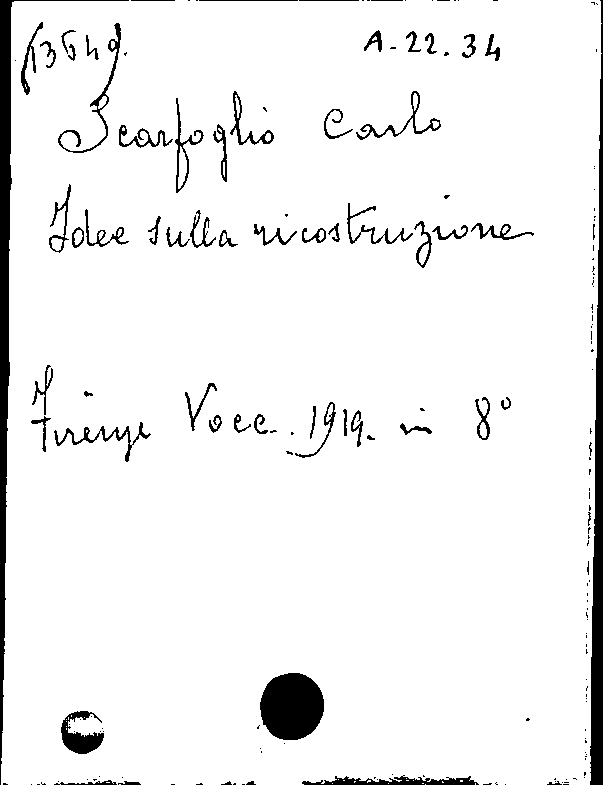 13549. A-22.34
Scarfoglio Carlo
Idee sulla ricostruzione
Firenze Voce. 1919. in 8°